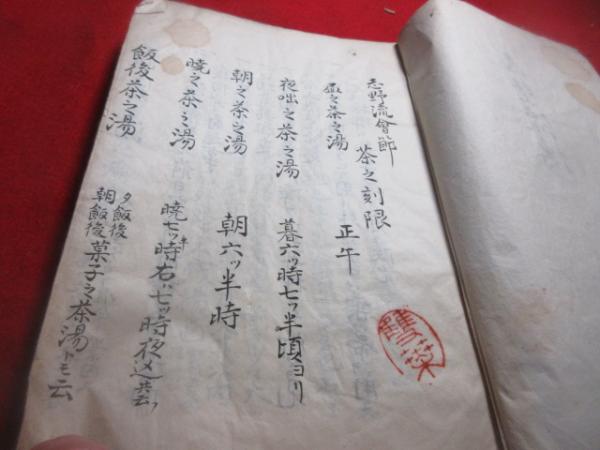 志野流會節
茶之刻限
昼之茶之湯 正午
夜咄之茶之湯 暮六ッ時七ッ半頃ヨリ
朝之茶之湯 朝六ッ半時
暁之茶之湯 暁七ッ時右ハ七ッ時夜込
飯後茶之湯 夕飯後朝飯後菓子之茶湯トモ云
雙葉